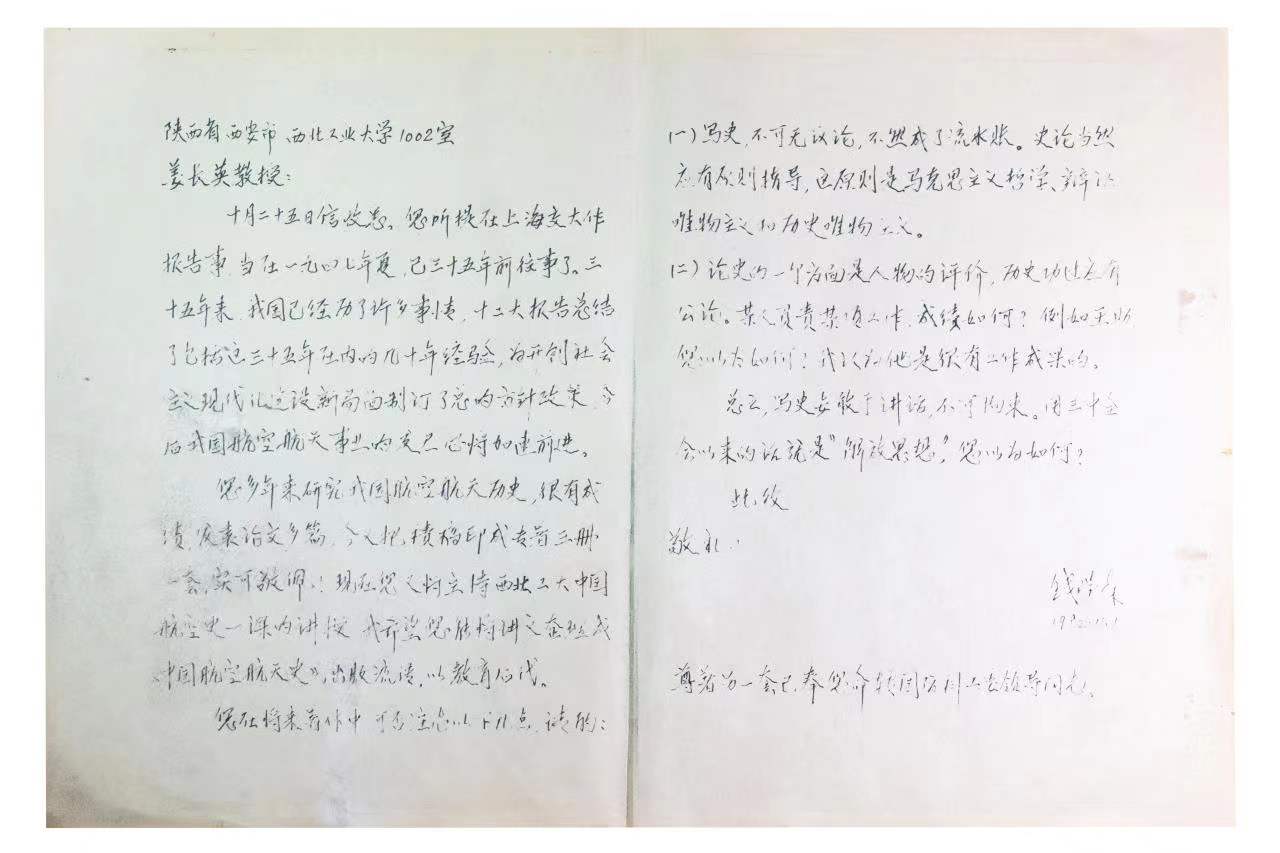 陕西省西安市、西北工业大学1002室
姜长英教授：
十月二十五日信收悉。您所提在上海交大作
报告事，当在一九四七年夏，已三十五年前往事了。三
十五年来，我国已经历了许多事情，十二大报告总结
了包括这三十五年在内的几十年经验，为开创社会
主义现代化建设新局面制订了总的方针政策，今
后我国航空航天事业的发展必将加速前进。
您多年来研究我国航空航天历史，很有成
绩，发表论文多篇，今又把积稿印成专著三册
一套，实可敬佩！现在您又将主持西北工大中国
航空史一课的讲授，我希望您能将讲义整理成
《中国航空航天史》，出版流传，以教育后代。
您在将来写作中可否注意以下几点，请酌：
(一) 写史，不可无议论，不然成了流水账。史论当然
应有原则指导，这原则是马克思主义哲学、辩证
唯物主义和历史唯物主义。
(二) 论史的一个方面是人物的评价，历史功过应有
公论。某人负责某项工作，成绩如何？例如王助
您以为如何？我认为他是很有工作成果的。
总之，写史要敢于讲话，不可拘束。用三中全
会以来的话就是“解放思想”。您以为如何？
此致
敬礼！
钱学森
1982.11.1
尊著另一套已奉您命转国防科工委领导同志。